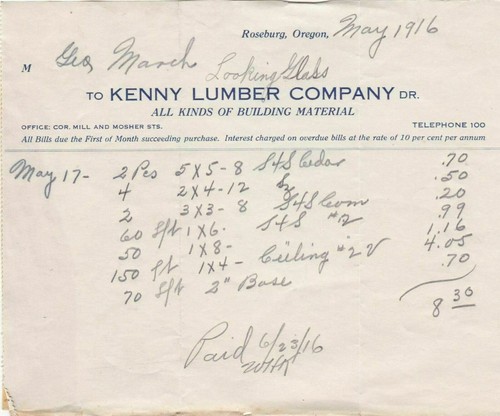 Roseburg, Oregon, May 1916
M Geo March
Looking Glass
TO KENNY LUMBER COMPANY DR.
ALL KINDS OF BUILDING MATERIAL
OFFICE: COR. MILL AND MOSHER STS. TELEPHONE 100
All Bills due the First of Month succeeding purchase. Interest charged on overdue bills at the rate of 10 per cent per annum
May 17- 2 Pcs 5X5-8 S4S Cedar .70
4 2X4-12 .50
2 3X3-8 S4S Com .20
60 sft 1X6- S4S #2 .99
50 1X8- 1.16
150 ft 1X4- Ceiling #2 V 4.05
70 sft 2" Base .70
8 30
Paid 6/23/16
WHK